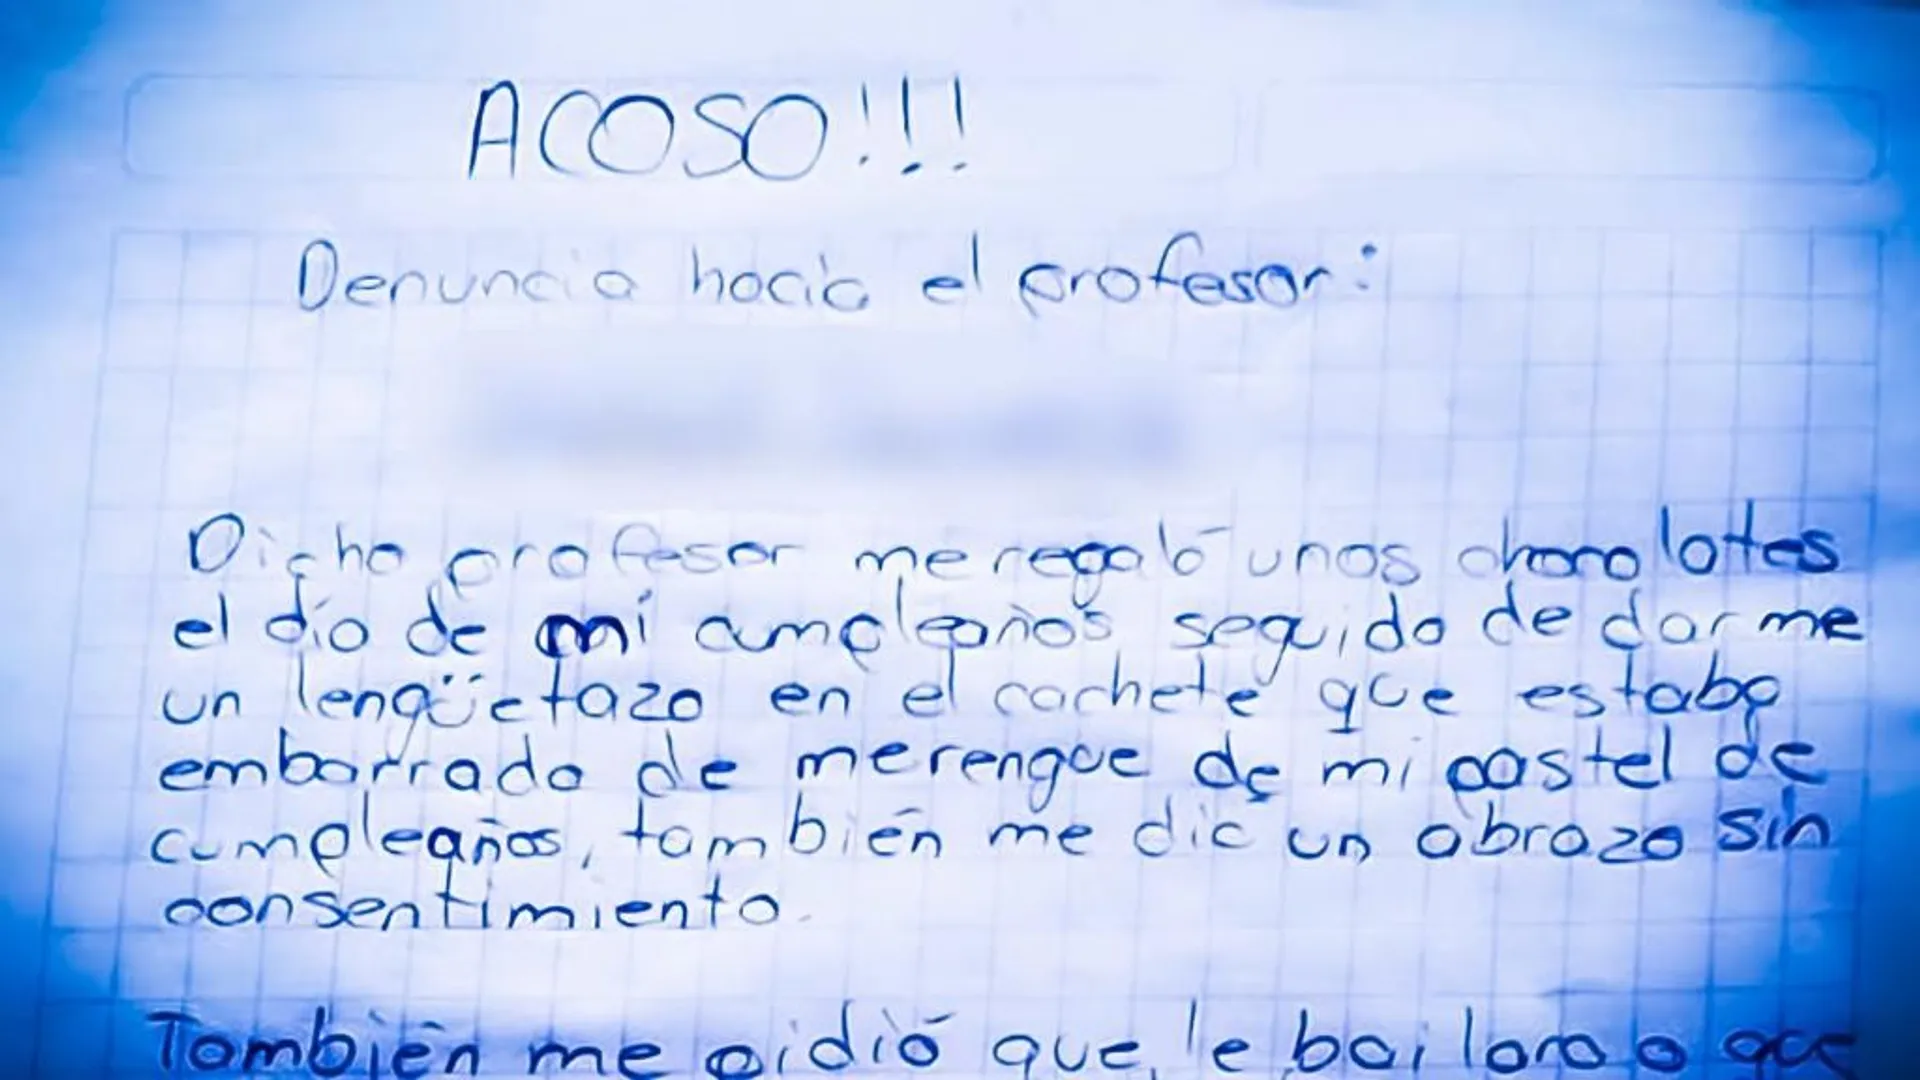 ACOSO!!!
Denuncia hacia el profesor:
Dicho profesor me regaló unos chocolates
el día de mi cumpleaños, seguido de darme
un lengüetazo en el cachete que estaba
embarrado de merengue de mi pastel de
cumpleaños, también me dió un abrazo sin
consentimiento.
También me pidió que le bailara o que